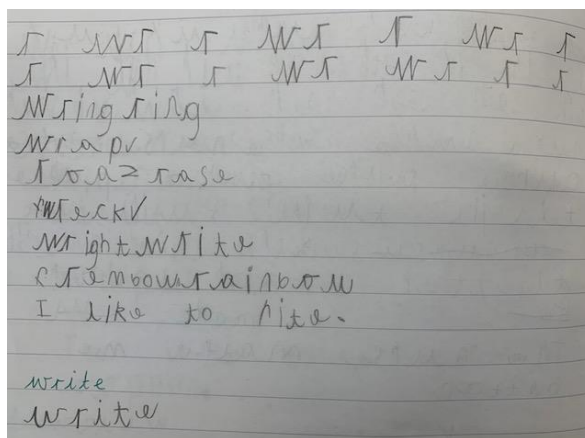 r wr r wr r wr r
r wr r wr wr r r
wring ring
wrap
roaz rase
wreck
wright write
rembow rainbow
I like to rite.
write
write